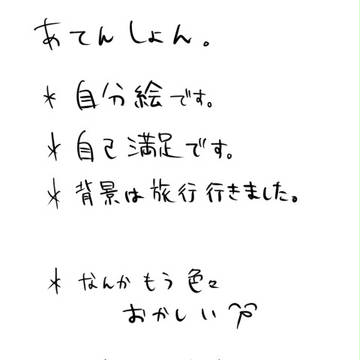 あてんしょん。
* 自分絵です。
* 自己満足です。
* 背景は旅行行きました。
* なんかもう色々
おかしい